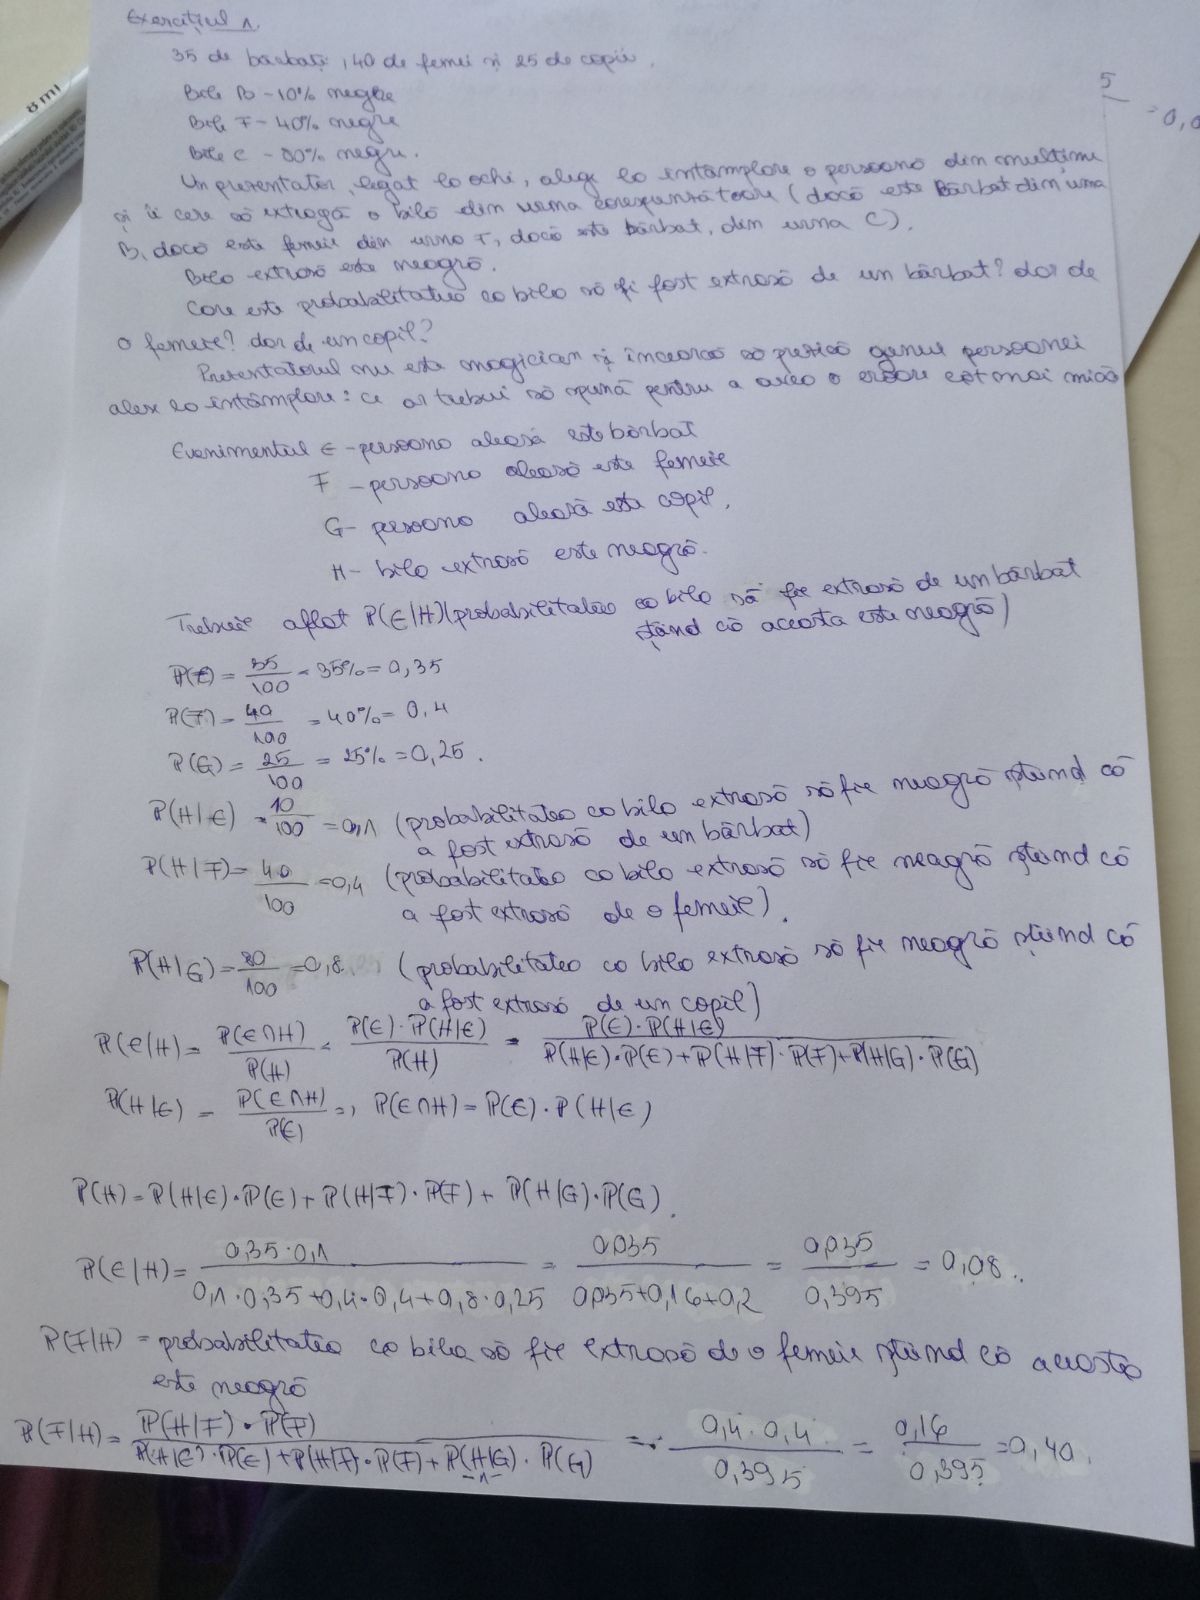 8 ml
Exercițiul 1.
35 de bărbați, 40 de femei și 25 de copii.
Bile B - 10% negre
Bile F - 40% negre
Bile C - 80% negre.
Un prezentator, legat la ochi, alege la întâmplare o persoană din mulțime
și îi cere să extragă o bilă din urna corespunzătoare (dacă este bărbat din urna
B, dacă este femeie din urna F, dacă este bărbat, din urna C).
Bila extrasă este neagră.
Care este probabilitatea ca bila să fi fost extrasă de un bărbat? dar de
o femeie? dar de un copil?
Prezentatorul nu este magician și încearcă să prezică genul persoanei
alese la întâmplare: ce ar trebui să spună pentru a avea o eroare cât mai mică
Evenimentul E - persoana aleasă este bărbat
F - persoana aleasă este femeie
G - persoana aleasă este copil.
H - bila extrasă este neagră.
Trebuie aflat P(E|H) (probabilitatea ca bila să fie extrasă de un bărbat
știind că aceasta este neagră)
P(E) = 35/100 = 35% = 0,35
P(F) = 40/100 = 40% = 0,4
P(G) = 25/100 = 25% = 0,25.
P(H|E) = 10/100 = 0,1 (probabilitatea ca bila extrasă să fie neagră știind că
a fost extrasă de un bărbat)
P(H|F) = 40/100 = 0,4 (probabilitatea ca bila extrasă să fie neagră știind că
a fost extrasă de o femeie).
P(H|G) = 80/100 = 0,8 (probabilitatea ca bila extrasă să fie neagră știind că
a fost extrasă de un copil)
P(E|H) = P(E∩H)/P(H) = P(E)·P(H|E)/P(H) = P(E)·P(H|E)/P(H|E)·P(E)+P(H|F)·P(F)+P(H|G)·P(G)
P(H|E) = P(E∩H)/P(E) => P(E∩H) = P(E)·P(H|E)
P(H) = P(H|E)·P(E) + P(H|F)·P(F) + P(H|G)·P(G).
P(E|H) = 0,35·0,1/0,1·0,35+0,4·0,4+0,8·0,25 = 0,035/0,035+0,16+0,2 = 0,035/0,395 = 0,08..
P(F|H) = probabilitatea ca bila să fie extrasă de o femeie știind că aceasta
este neagră
P(F|H) = P(H|F)·P(F)/P(H|E)·P(E)+P(H|F)·P(F)+P(H|G)·P(G) = 0,4·0,4/0,395 = 0,16/0,395 = 0,40.
-1-
5
= 0,0